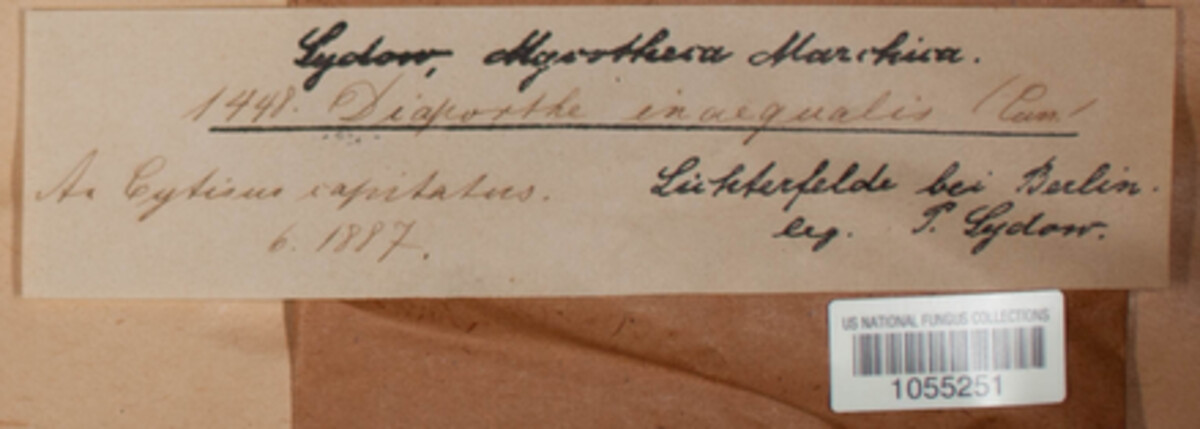 Sydow, Mycotheca Marchica.
1448. Diaporthe inaequalis (Curr.)
An Cytisus capitatus.
6. 1887.
Lichterfelde bei Berlin.
leg. P. Sydow.
US NATIONAL FUNGUS COLLECTIONS
1055251